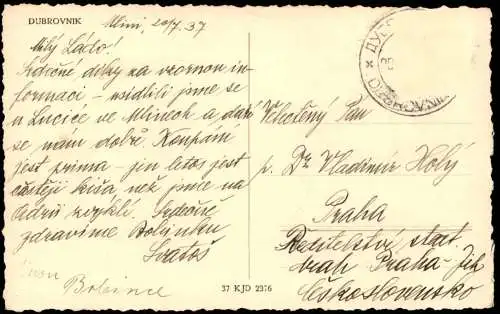 DUBROVNIK
Mlini, 20/7.37
Milý Láďo!
Srdečné díky za vzornou in-
formaci – usídlili jsme se
u Lucić ve Mlinech a daří
se nám dobře. Koupání
jest prima – jen letos jest
častěji kiša než jsme na
Adrii zvyklí. Srdečně
zdravíme Bolynku
Svatoš
37 KJD 2376
Velectěný Pan
p. Dr Vladimír Holý
Praha
Ředitelství stát.
drah Praha-Jih
Československo